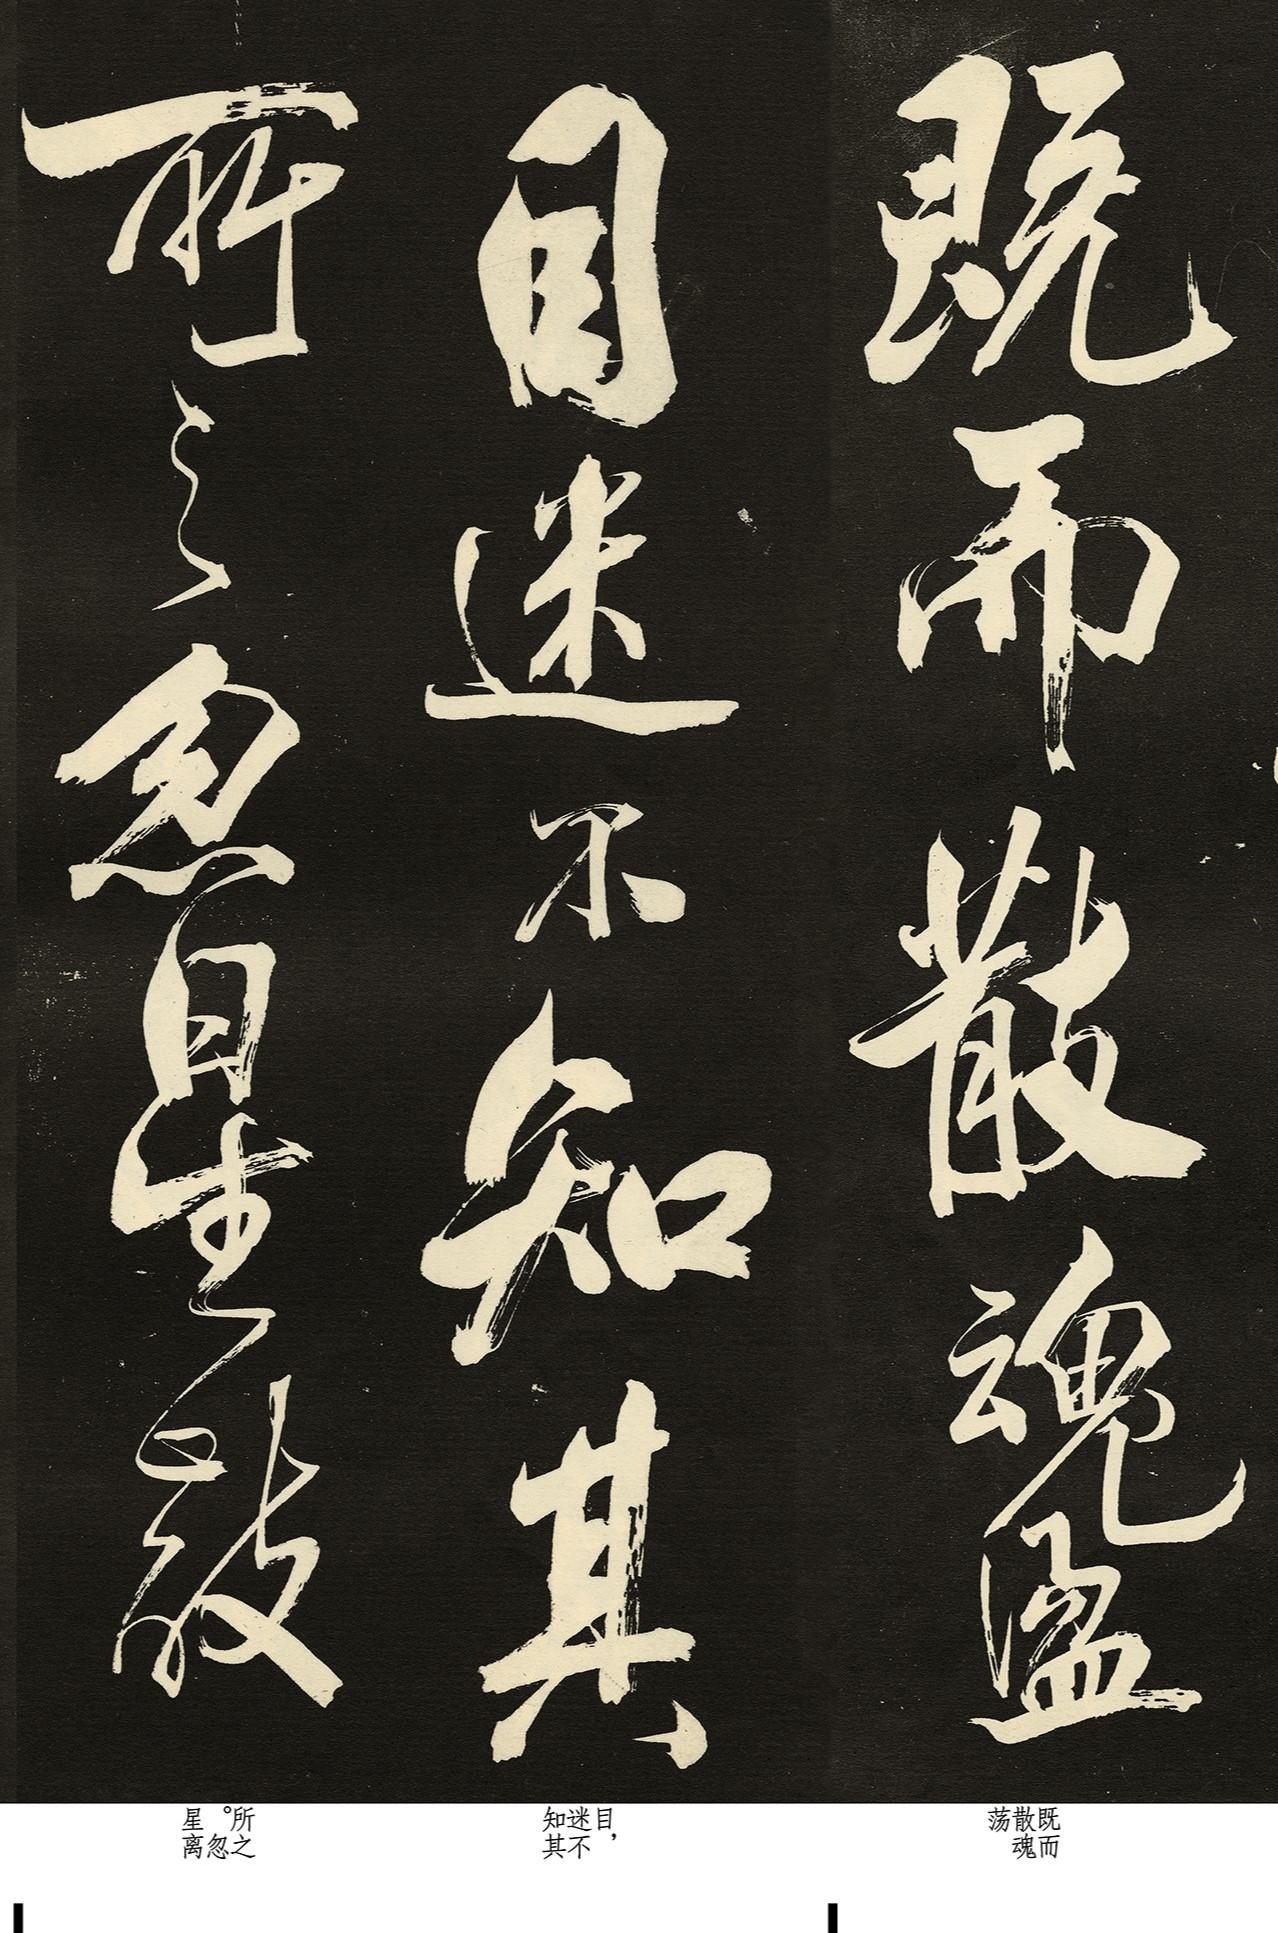 既而散魂盪
目迷不知其
所之忽星離
既而
散魂
荡
目，
迷不
知其
所之
。忽
星离